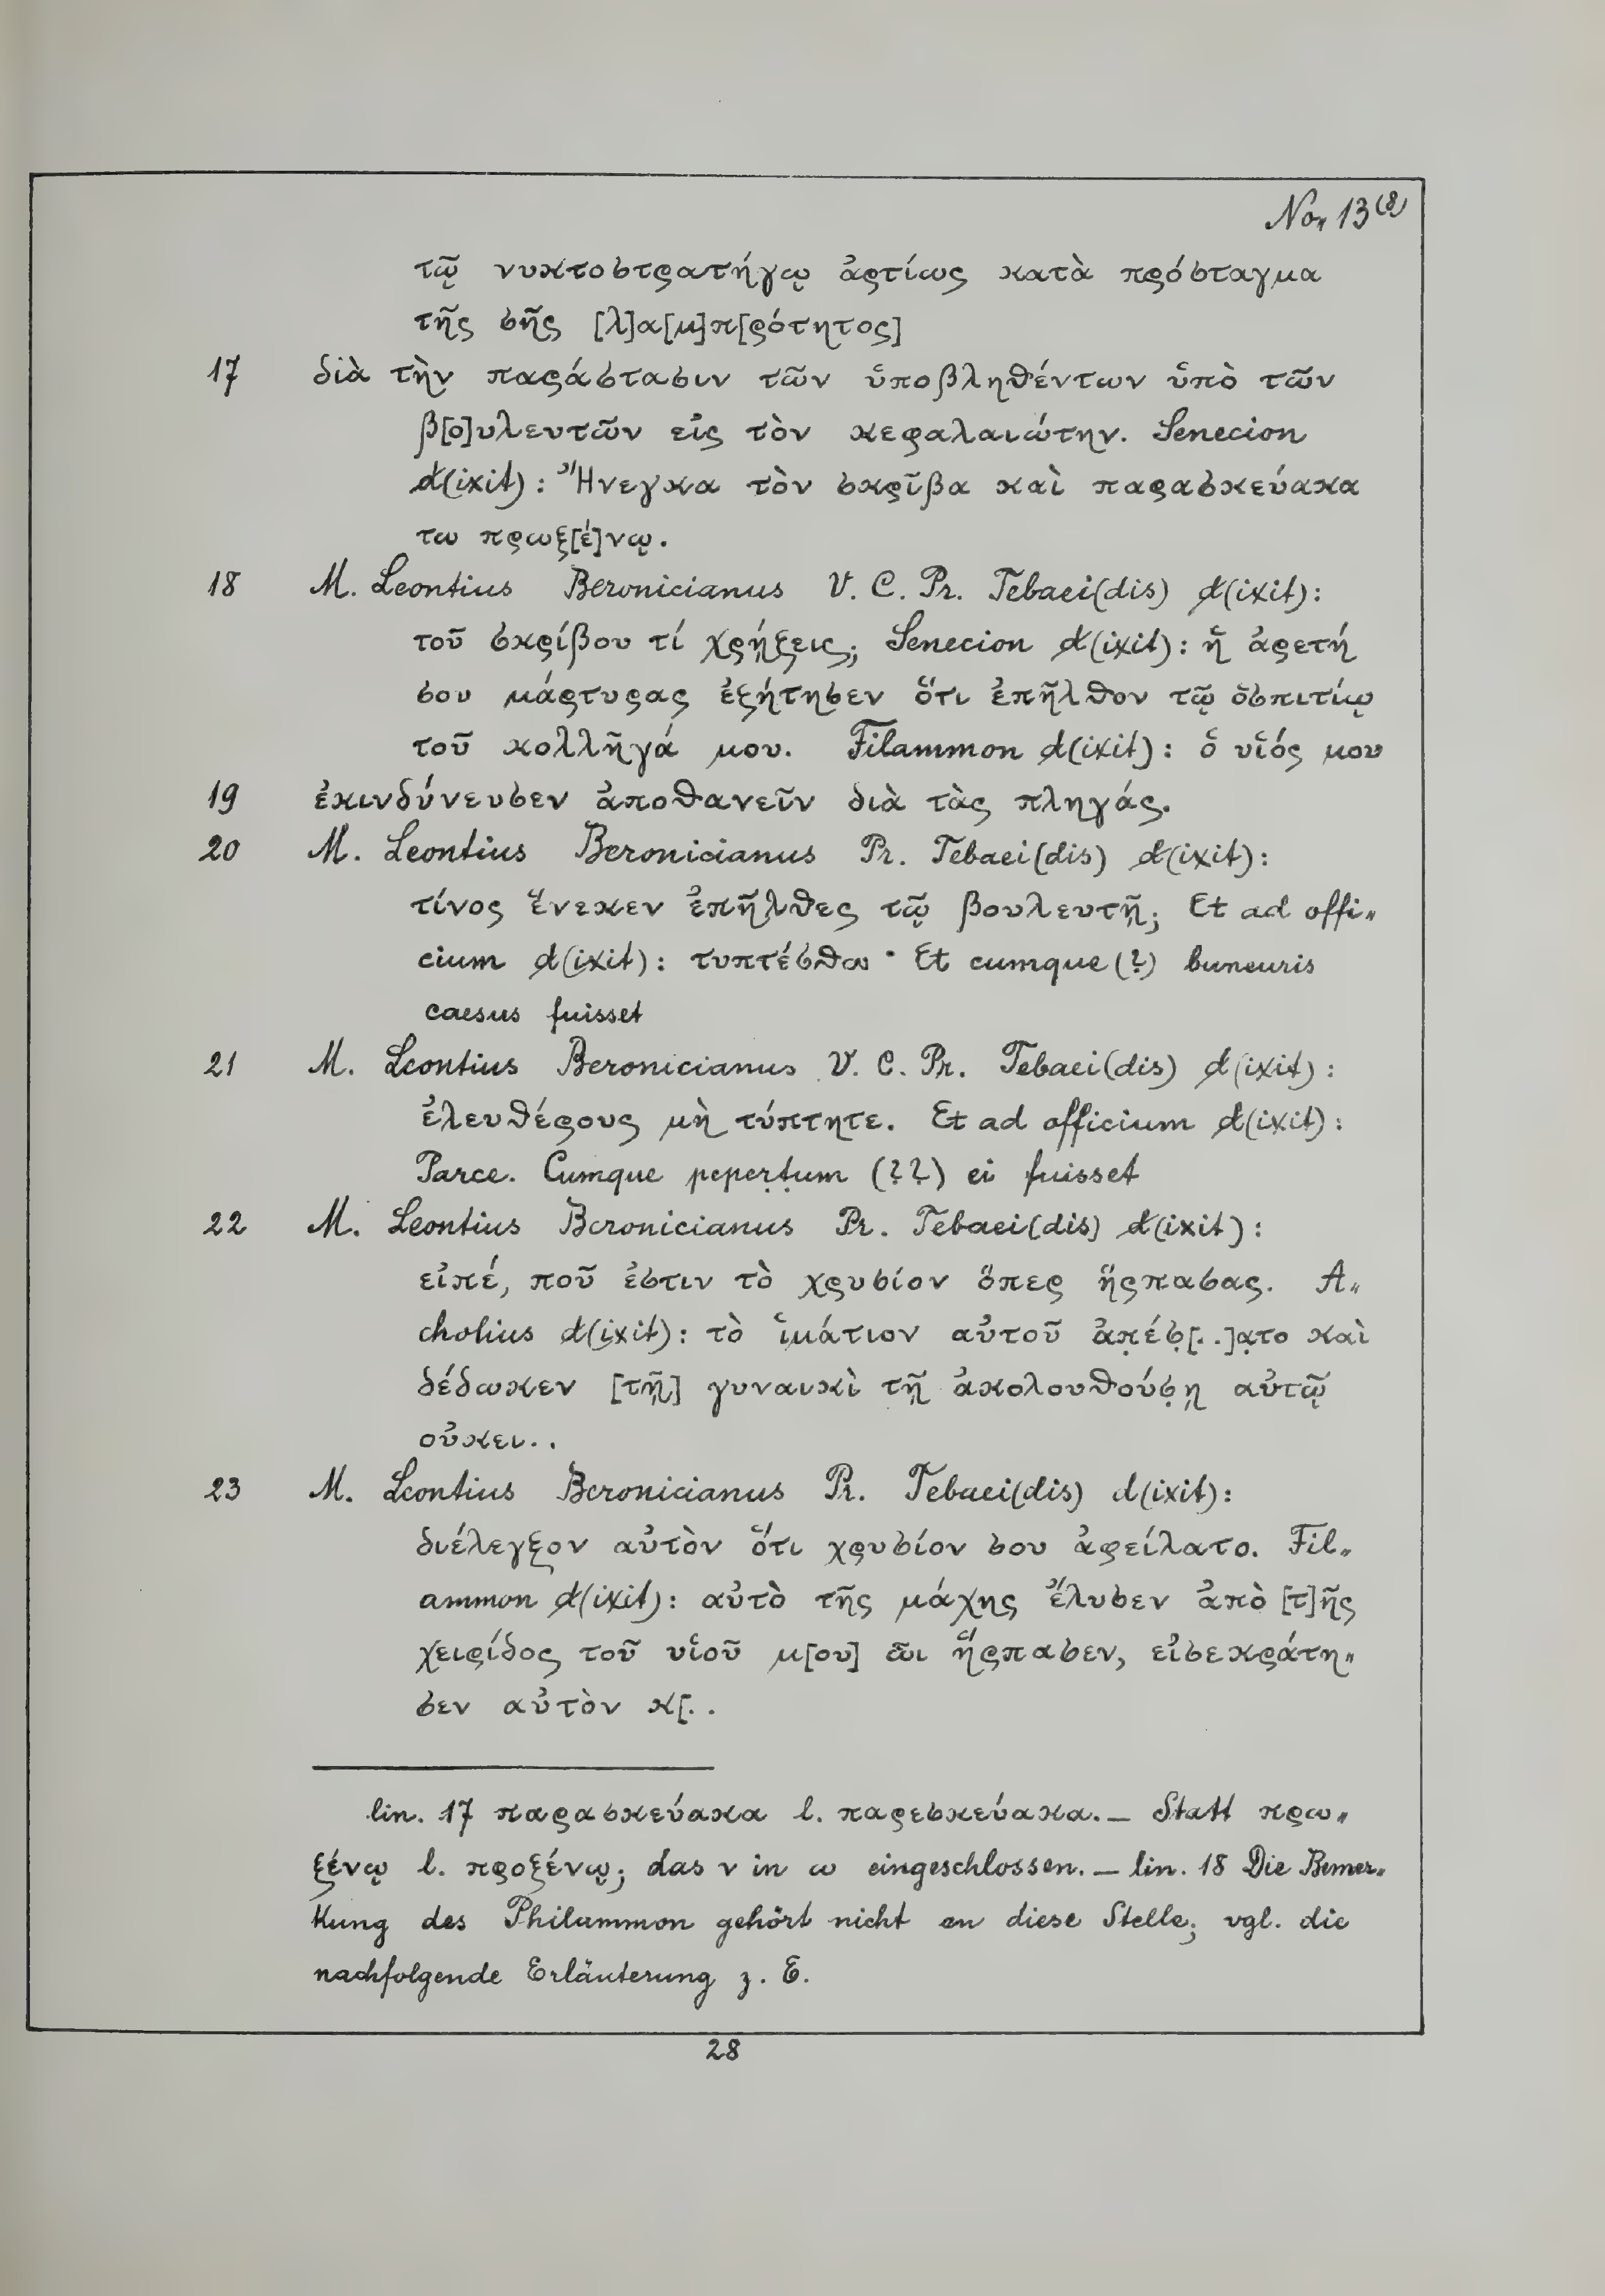 No. 13(8)
τῷ νυκτοστρατήγῳ ἀρτίως κατὰ πρόσταγμα
τῆς σῆς [λ]α[μ]π[ρότητος]
17 διὰ τὴν παράστασιν τῶν ὑποβληθέντων ὑπὸ τῶν
β[ο]υλευτῶν εἰς τὸν κεφαλαιώτην. Senecion
d(ixit): Ἤνεγκα τὸν σκρῖβα καὶ παρασκεύακα
τω πρωξ[έ]νῳ.
18 M. Leontius Beronicianus V. C. Pr. Tebaei(dis) d(ixit):
τοῦ σκρίβου τί χρῄζεις; Senecion d(ixit): ἡ ἀρετή
σου μάρτυρας ἐζήτησεν ὅτι ἐπῆλθον τῷ ὁσπιτίῳ
τοῦ κολλῆγά μου. Filammon d(ixit): ὁ υἱός μου
19 ἐκινδύνευσεν ἀποθανεῖν διὰ τὰς πληγάς.
20 M. Leontius Beronicianus Pr. Tebaei(dis) d(ixit):
τίνος ἕνεκεν ἐπῆλθες τῷ βουλευτῇ; Et ad offi„
cium d(ixit): τυπτέσθω · Et cumque (?) buneuris
caesus fuisset
21 M. Leontius Beronicianus V. C. Pr. Tebaei(dis) d(ixit):
ἐλευθέρους μὴ τύπτητε. Et ad officium d(ixit):
Parce. Cumque pepeṛṭum (??) ei fuisset
22 M. Leontius Beronicianus Pr. Tebaei(dis) d(ixit):
εἰπέ, ποῦ ἐστιν τὸ χρυσίον ὅπερ ἥρπασας. A„
cholius d(ixit): τὸ ἱμάτιον αὐτοῦ ἀπ̣έσ̣[..]α̣το καὶ
δέδωκεν [τῇ] γυναικὶ τῇ ἀκολουθούσ̣ῃ αὐτῷ
οὐκει..
23 M. Leontius Beronicianus Pr. Tebaei(dis) d(ixit):
διέλεγξον αὐτὸν ὅτι χρυσίον σου ἀφείλατο. Fil„
ammon d(ixit): αὐτὸ τῆς μάχης ἔλυσεν ἀπὸ [τ]ῆς
χειρίδος τοῦ υἱοῦ μ[ου] ὧι ἥρπασεν, εἰσεκράτη„
σεν αὐτὸν κ[..
lin. 17 παρασκεύακα l. παρεσκεύακα. — Statt πρω„
ξένῳ l. προξένῳ; das ν in ω eingeschlossen. — lin. 18 Die Bemer„
kung des Philammon gehört nicht an diese Stelle; vgl. die
nachfolgende Erläuterung z. E.
28